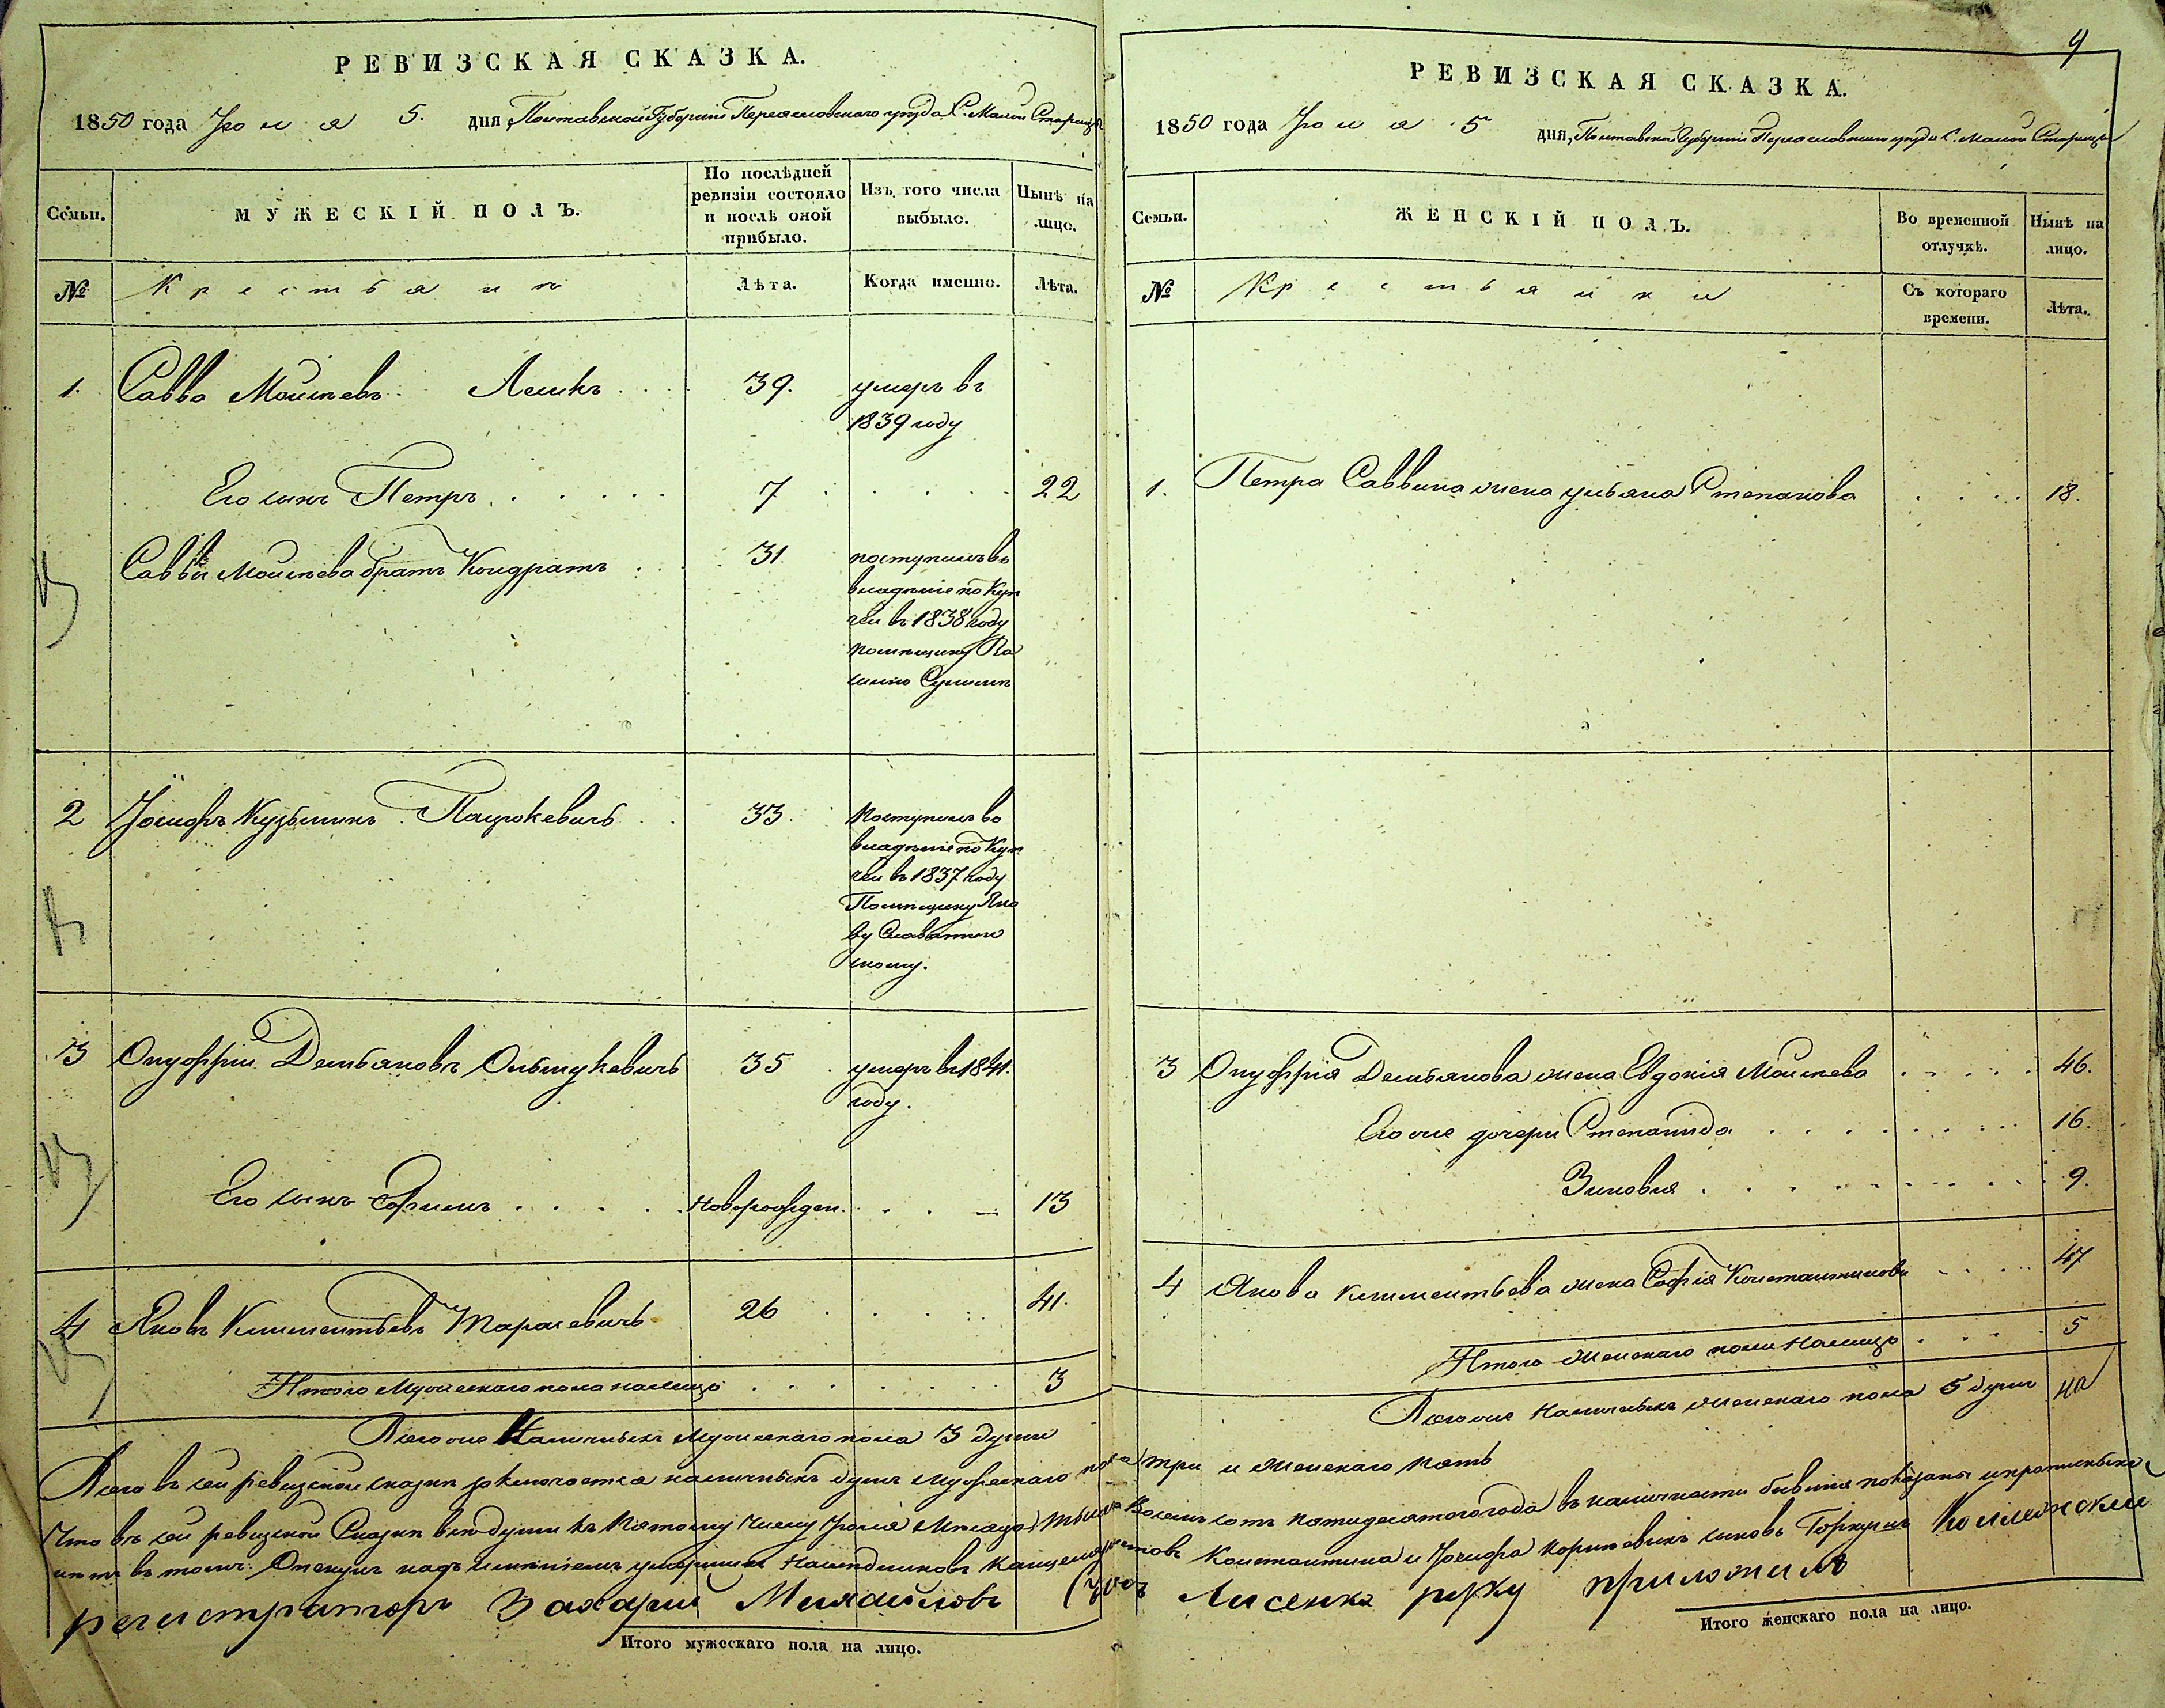 9
РЕВИЗСКАЯ СКАЗКА.
1850 года Июля 5. дня, Полтавской Губерніи Переясловскаго уезда С. Малой Старицы
Семьи.
МУЖЕСКІЙ ПОЛЪ.
По послѣдней ревизіи состояло и послѣ оной прибыло.
Изъ того числа выбыло.
Нынѣ на лицо.
№
Крестьянъ
Лѣта.
Когда именно.
Лѣта.
1. Савва Моисеевъ Лешкъ 39. умеръ въ
1839 году
Его сынъ Петръ 7 22
Саввы Моисеева братъ Кондратъ 31. поступилъ во
владѣніе по Куп
чей въ 1838 году
помѣщику
2 Іосифъ Кузьминъ Пацукевичъ 33. поступилъ во
владѣніе по Куп
чей въ 1837 году
Помѣщику Яко
ву Славатин
скому.
3 Онуфрій Демьяновъ Ольшукевичъ 35 умеръ въ 1841.
году.
Его сынъ Ефимъ Новорожден. 13
4 Яковъ Климентьевъ Тарасевичъ 26 41.
Итого Мужескаго пола налицо 3
Всего же Наличныхъ Мужескаго пола 3 души
РЕВИЗСКАЯ СКАЗКА.
1850 года Июля 5 дня, Полтавской Губерніи Переясловскаго уезда С. Малой Старицы
Семьи.
ЖЕНСКІЙ ПОЛЪ.
Во временной отлучкѣ.
Нынѣ на лицо.
№
Крестьянки
Съ котораго времени.
Лѣта.
1. Петра Саввина жена ульяна Степанова 18.
3 Онуфрія Демьянова жена Евдокія Моисеева 46.
Его же дочери Степанида 16.
Зиновія 9.
4 Якова Климентьева жена Софія Константинова 47
Итого Женскаго пола Налицо 5
Всего же Наличныхъ Женскаго пола 5 душъ
Всего въ сей ревизской сказкѣ заключается наличныхъ душъ Мужескаго пола три и Женскаго пять
Что въ сей ревизской Сказкѣ все души къ Пятому Числу Июля Мѣсяца тысяча восемь сотъ пятидесятого года въ наличности бывшія показаны и прописныхъ
нѣтъ въ томъ: Опекунъ надъ имѣніемъ умершихъ Константина и Іосифа сыновъ Коллежскій
регистраторъ Захарій Михайловъ сынъ Лисенко руку приложилъ
Итого мужескаго пола на лицо.
Итого женскаго пола на лицо.